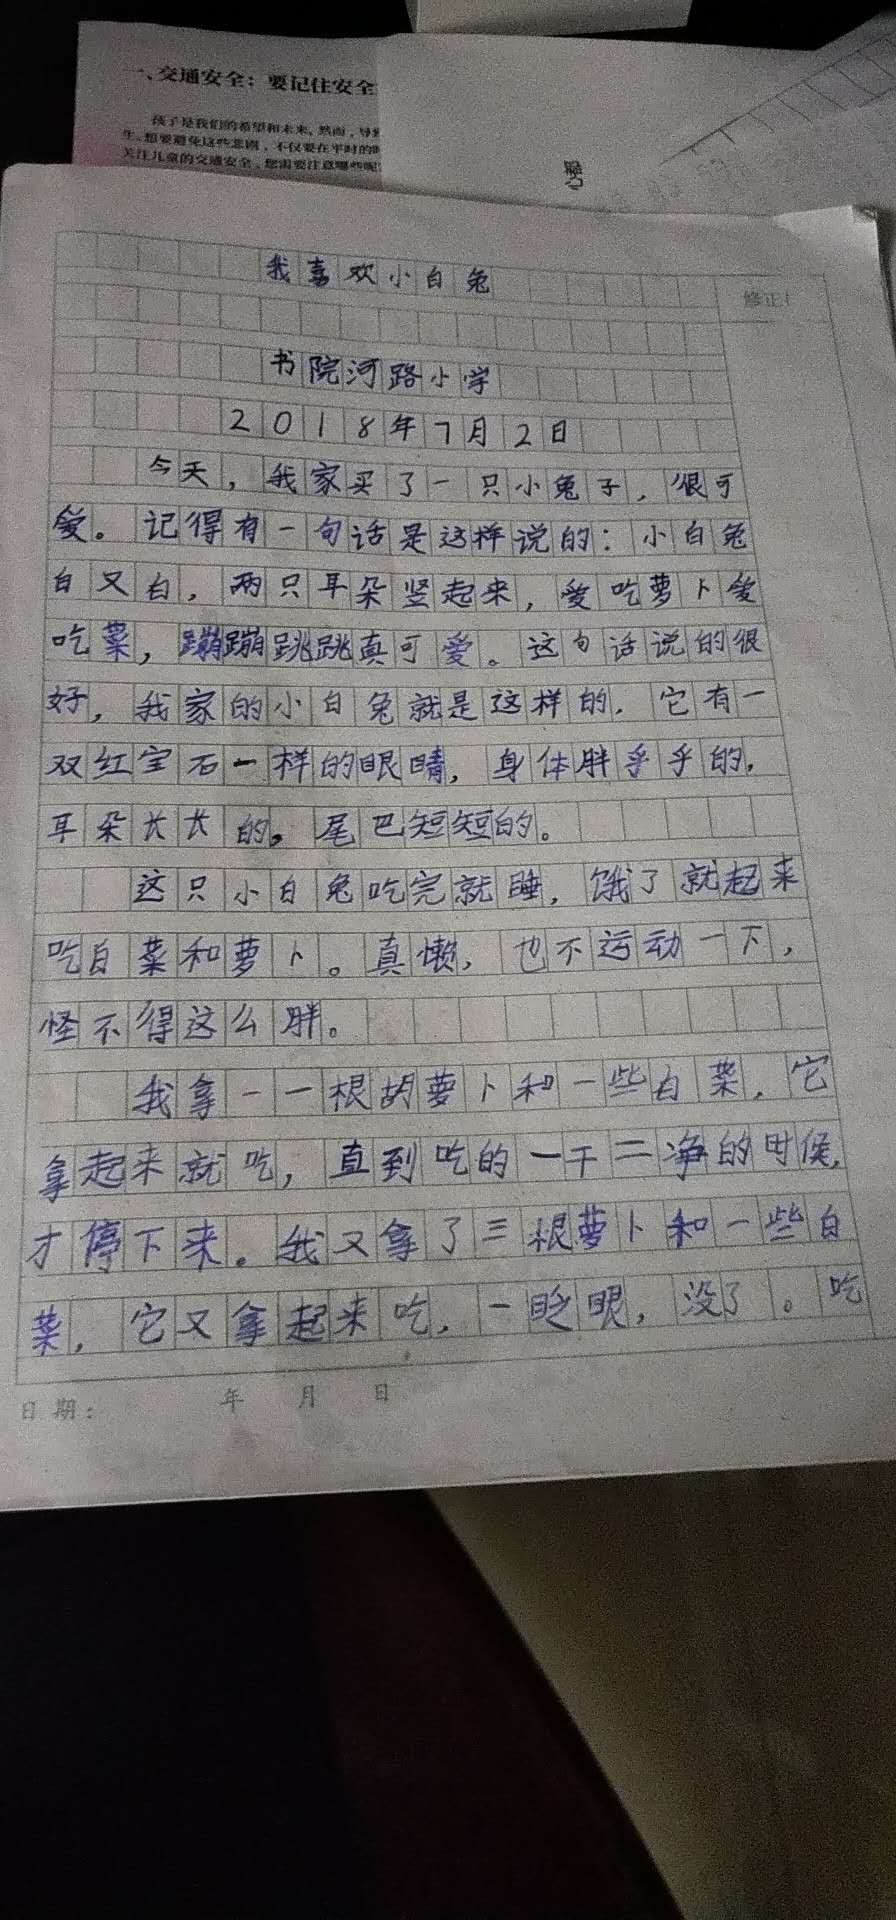 一、交通安全：要记住安全
孩子是我们的希望和未来，然而，导致
生。想要避免这些悲剧，不仅要在平时的
关注儿童的交通安全。您需要注意哪些呢
我喜欢小白兔
修正
书院河路小学
2018年7月2日
今天，我家买了一只小兔子，很可
爱。记得有一句话是这样说的：小白兔
白又白，两只耳朵竖起来，爱吃萝卜爱
吃菜，蹦蹦跳跳真可爱。这句话说的很
好，我家的小白兔就是这样的．它有一
双红宝石一样的眼睛，身体胖乎乎的，
耳朵长长的。尾巴短短的。
这只小白兔吃完就睡，饿了就起来
吃白菜和萝卜。真懒，也不运动一下，
怪不得这么胖。
我拿一一根胡萝卜和一些白菜．它
拿起来就吃，直到吃的一干二净的时候，
才停下来。我又拿了三根萝卜和一些白
菜，它又拿起来吃，一眨眼，没了。吃
日期：年月日